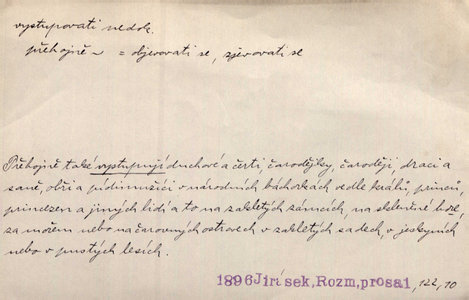 vystupovati nedok.
přehojně ~ = objevovati se, zjevovati se
Přehojně také vystupují duchové a čerti, čarodějky, čaroději, draci a
saně, obři a pidimužíci v národních báchorkách vedle králů, princů,
princezen a jiných lidí a to na zakletých zámcích, na skleněné hoře,
za mořem nebo na čarovných ostrovech v zakletých sadech, v jeskyních
nebo v pustých lesích.
1896 Jirásek, Rozm, prosa 1, 122, 10